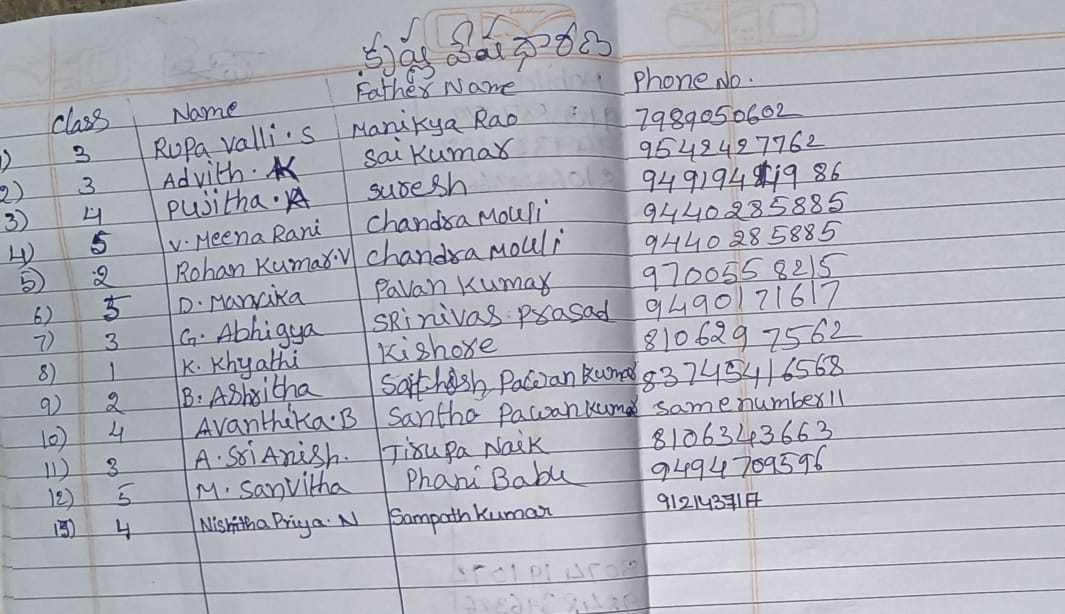 Class Name Father Name Phone No.
1) 3 Rupa Valli.S Manikya Rao 7989050602
2) 3 Advith.K Sai Kumar 9542427762
3) 4 Pujitha.A Suresh 986
4) 5 V.Meena Rani Chandra Mouli 9440285885
5) 2 Rohan Kumar.V Chandra Mouli 9440285885
6) 5 D. Pavan Kumar 9700558215
7) 3 G. Abhigya SRinivas Prasad 9490171617
8) 1 K. Khyathi Kishore 8106297562
9) 2 B. Ashritha Pawan Kumar
10) 4 Avanthika.B Santho Pawan Kumar same number 11
11) 3 A. Sri Anish. Tirupa Naik 8106343663
12) 5 M. Sanvitha Phani Babu 9494709596
13) 4 Nishitha Priya. N Sampath Kumar